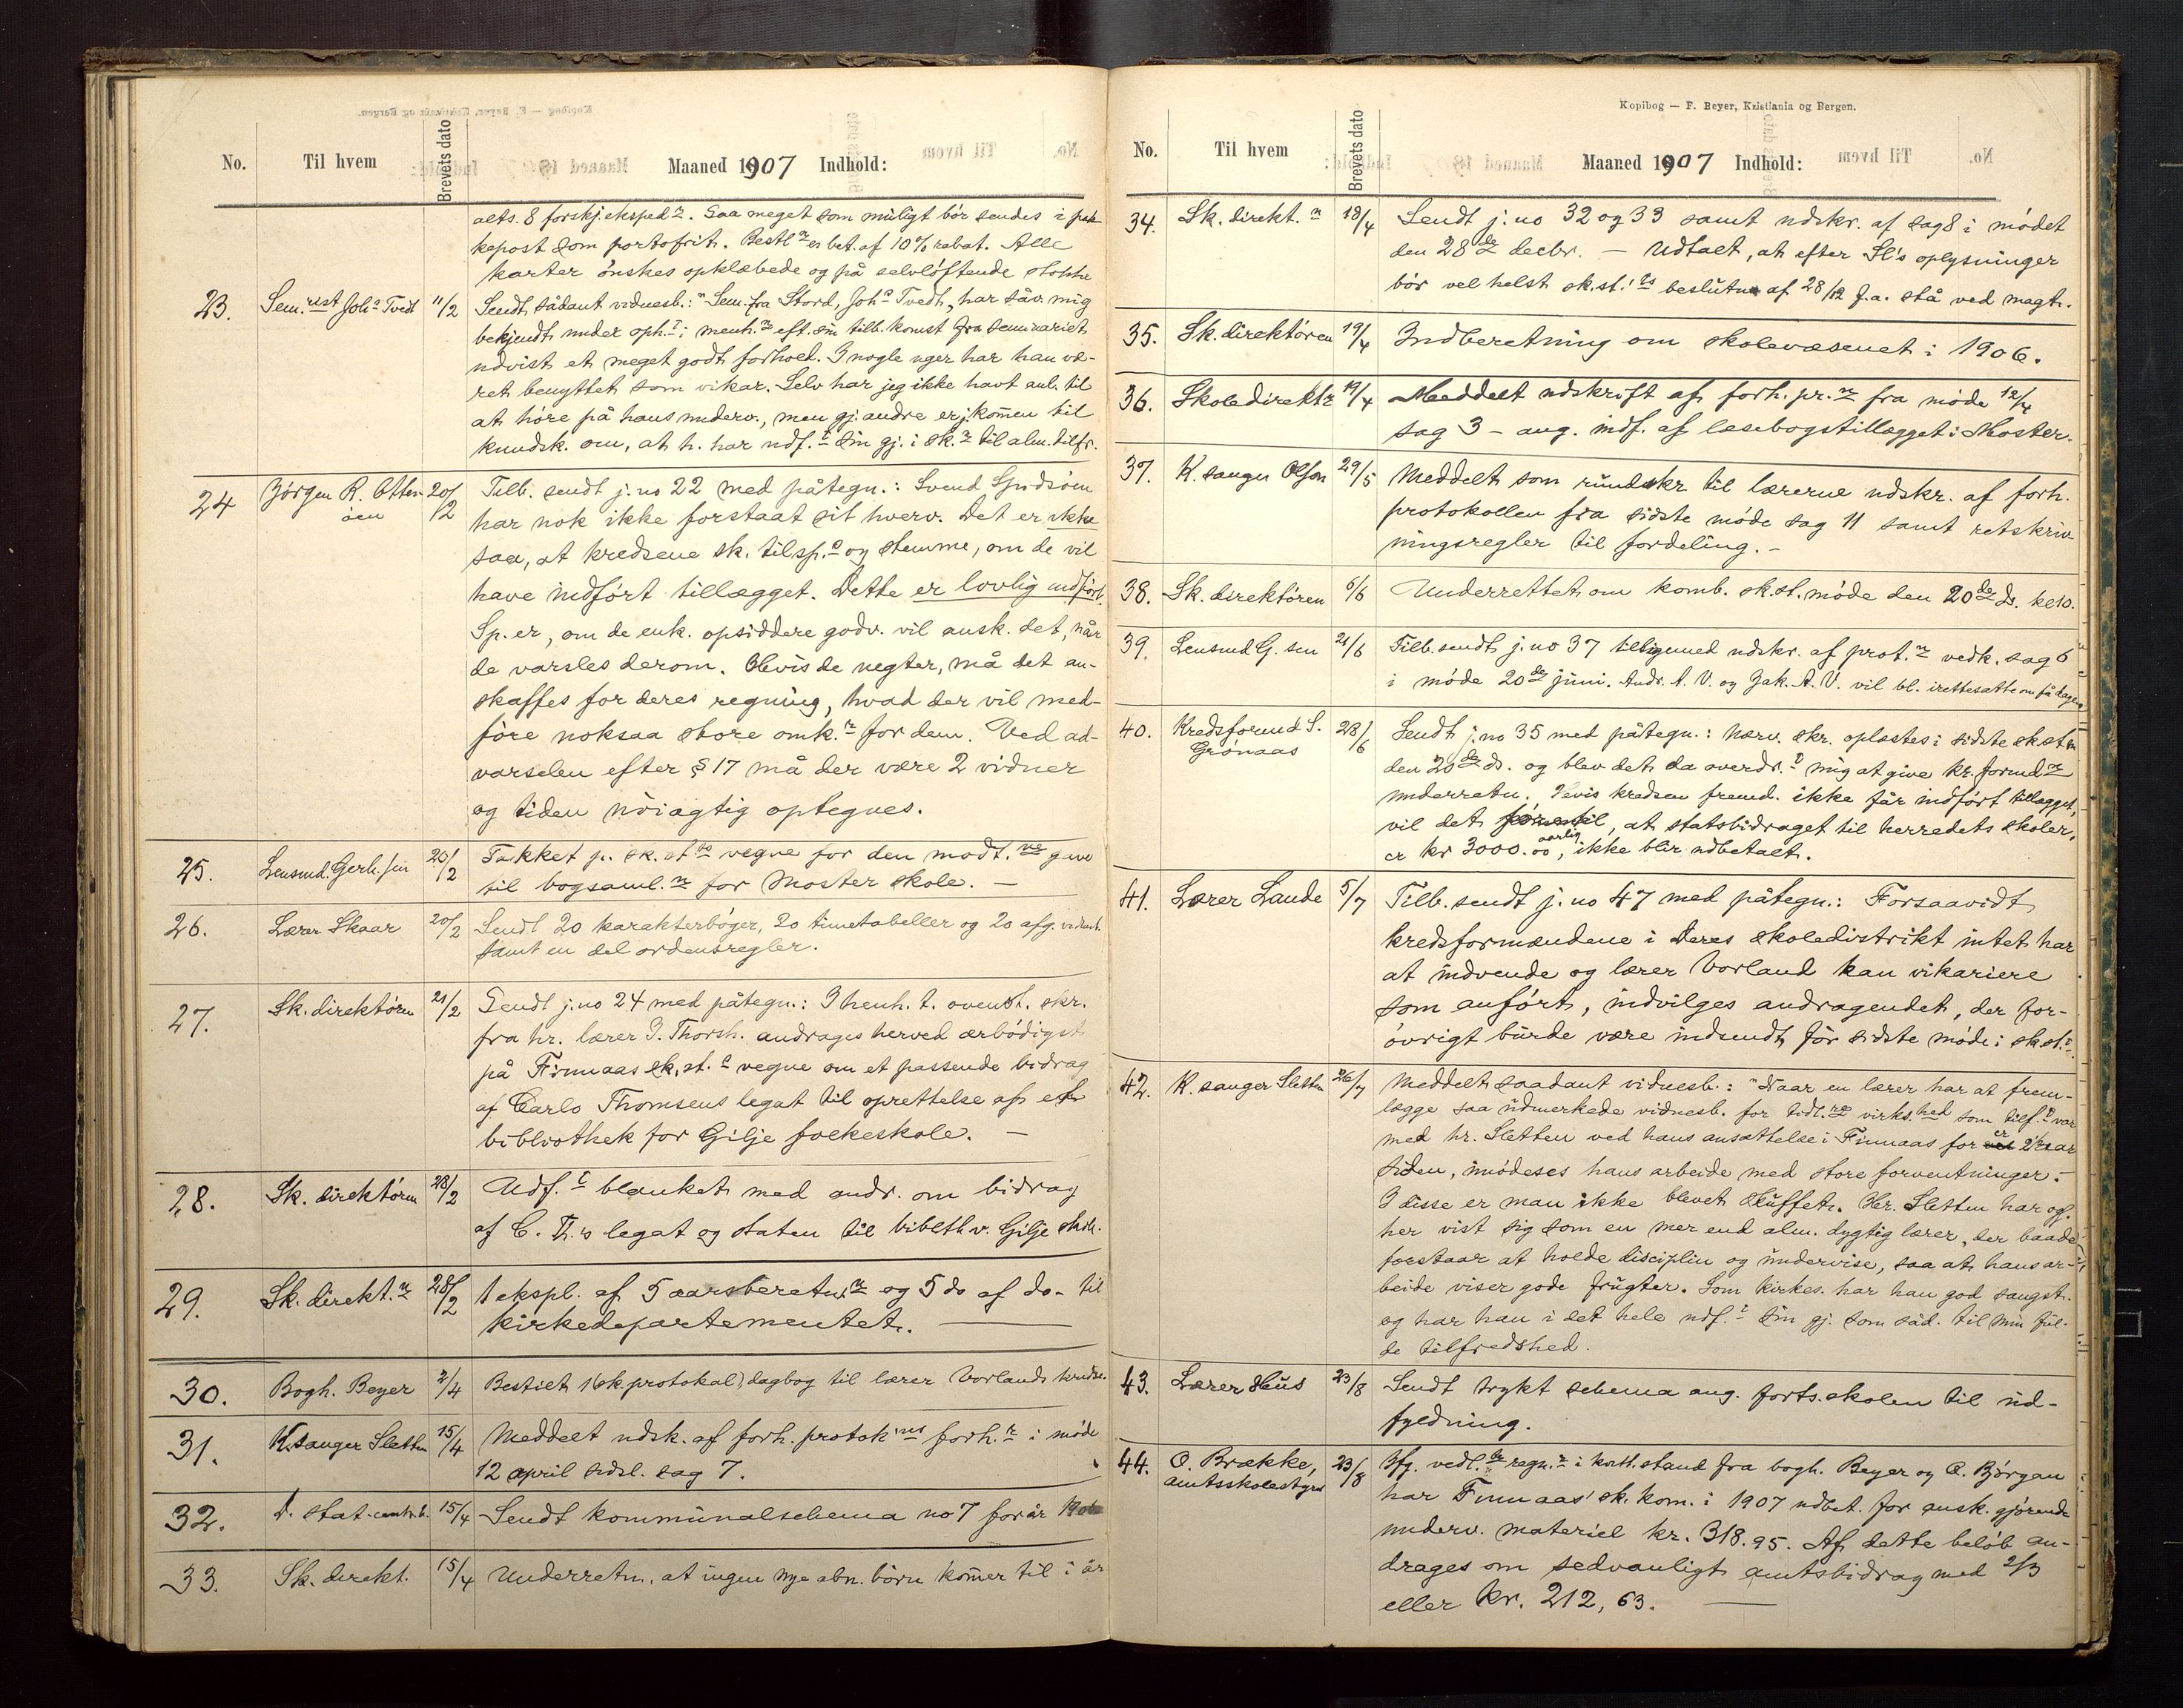 No. Til hvem Brevets dato Maaned 1907 Indhold:
aets. 8 forskj. eksped.r. Saa meget som muligt bör sendes i pak-
kepost som portofrit. Bestl.n er bet. af 10% rabat. Alle
karter önskes opklæbede og på selvlöftende stokke
23. Sem.rist Joh.s Tvedt 11/2 Sendt sådant vidnesb.: "Sem. fra Stord, Joh.s Tvedt, har såv. mig
bekjendt under oph.t i menh.n eft. sin tilb.komst fra seminariet
udvist et meget godt forhold. I nogle uger har han væ-
ret benyttet som vikar. Selv har jeg ikke havt anl. til
at höre på hans underv., men gj. andre er j. kommen til
kundsk. om, at h. har udf.t sin gj. i sk.n til alm. tilfr.
24 Jörgen R. Otter-
öen 20/2 Tilb. sendt j. no 22 med påtegn.: Svend
har nok ikke forstaat sit hverv. Det er ikke
saa, at kredsene sk. tilsp.s og stemme, om de vil
have indfört tillægget. Dette er lovlig indfört.
Sp. er, om de enk. opsiddere godv. vil ansk. det, når
de varsles derom. Hvis de negter, må det an-
skaffes for deres regning, hvad der vil med-
före noksaa store omk.r for dem. Ved ad-
varselen efter § 17 må der være 2 vidner
og tiden nöiagtig optegnes.
25. Lensmd. Gerh.sen 20/2 Takket p. sk.st.ts vegne for den modt.ne gave
til bogsaml.n for Moster skole. —
26. Lærer Skaar 20/2 Sendt 20 karakterböger, 20 timetabeller og 20 afg. vidnesb.
samt en del ordensregler.
27. Sk. direktören 21/2 Sendt j. no 24 med påtegn.: I henh. t. ovenst. skr.
fra hr. lærer I. Thorsh. andrages herved ærbödigst
på Finnaas sk.st.s vegne om et passende bidrag
af Carlo Thomsens legat til oprettelse af et
bibliothek for Gilje folkeskole. —
28. Sk. direktören 28/2 Udf.t blanket med andr. om bidrag
af C. Th.s legat og staten til biblth v. Gilje skole.
29. Sk. direkt.n 28/2 1 ekspl. af 5aarsberetn.n og 5 do af do - til
kirkedepartementet. —
30. Bogh. Beyer 2/4 Bestilt 1 (sk.protokol) dagbog til lærer Vorlands kredse.
31. K.sanger Sletten 15/4 Meddelt udsk. af forh. protok.ns forh.r i möde
12 april sidsl. sag 7.
32. D. stat. centr.b. 15/4 Sendt kommunalschema no 7 for år 1906
33. Sk. direkt. 15/4 Underretn. at ingen nye abn. börn kommer til i år
Kopibog — F. Beyer, Kristiania og Bergen.
No. Til hvem Brevets dato Maaned 1907 Indhold:
34. Sk. direkt.n 18/4 Sendt j. no 32 og 33 samt udskr. af sag 8 i mödet
den 28de decbr. — Udtalt, at efter Sl's oplysninger
bör vel helst sk.st.'ts beslutn af 28/12 f.a. stå ved magt.
35. Sk. direktören 19/4 Indberetning om skolevæsenet i 1906.
36. Skoledirektr 19/4 Meddelt udskrift af forh. pr.n fra möde 12/4
sag 3 - ang. indf. af læsebogstillægget i Moster.
37. K. sanger Olson 29/5 Meddelt som rundskr til lærerne udskr. af forh.
protokollen fra sidste möde sag 11 samt retskriv-
ningsregler til fordeling. -
38. Sk. direktören 6/6 Underrettet om komb. sk.st. möde den 20de ds. kl 10.
39. Lensmd G. sen 21/6 Tilb. sendt j. no 37 tilligemed udskr. af prot.n vedk. sag 6
i möde 20de juni. Andr. A. V. og Jak. A. V. vil bl. irettesatte om få dage
40. Kredsformd S.
Grönaas 28/6 Sendt j. no 35 med påtegn.: Nærv. skr. oplæstes i sidste sk.st.m
den 20de ds. og blev det da overdr.t mig at give kr. formd.n
underretn. Hvis kredsen fremd. ikke får indfört tillægget,
vil det före til, at statsbidraget til herredets skoler,
er kr 3000.00 aarlig, ikke blir udbetalt.
41. Lærer Lande 5/7 Tilb. sendt j. no 47 med påtegn.: Forsaavidt
kredsformændene i Deres skoledistrikt intet har
at indvende og lærer Vorland kan vikariere
som anfört, indvilges andragendet, der for-
övrigt burde være indsendt för sidste möde i sk.st.t.
42. K. sanger Sletten 26/7 Meddelt saadant vidnesb.: "Naar en lærer har at frem-
lægge saa udmerkede vidnesb. for tidl.re virks.hed som tilf.t var
med hr. Sletten ved hans ansættelse i Finnaas for er 2½ aar
siden, imödeses hans arbeide med store forventninger.
I disse er man ikke blevet skuffet. Hr. Sletten har og.
her vist sig som en mer end alm. dygtig lærer, der baade
forstaar at holde disciplin og undervise, saa at hans ar-
beide viser gode frugter. Som kirkes. har han god sangst.
og har han i det hele udf.t sin gj. som såd. til min ful-
de tilfredshed.
43. Lærer Hus 23/8 Sendt trykt schema ang. forts.skolen til ud-
fyldning.
44. O. Brække,
amtsskolestyret 23/8 Ifg. vedl.te regn.r i kvitt. stand fra bogh. Beyer og O. Björgan
har Finnaas' sk. kom. i 1907 udbet. for ansk. gjörende
underv. materiel kr. 318.95. Af dette belöb an-
drages om sedvanligt amtsbidrag med 2/3
eller kr. 212,63. —